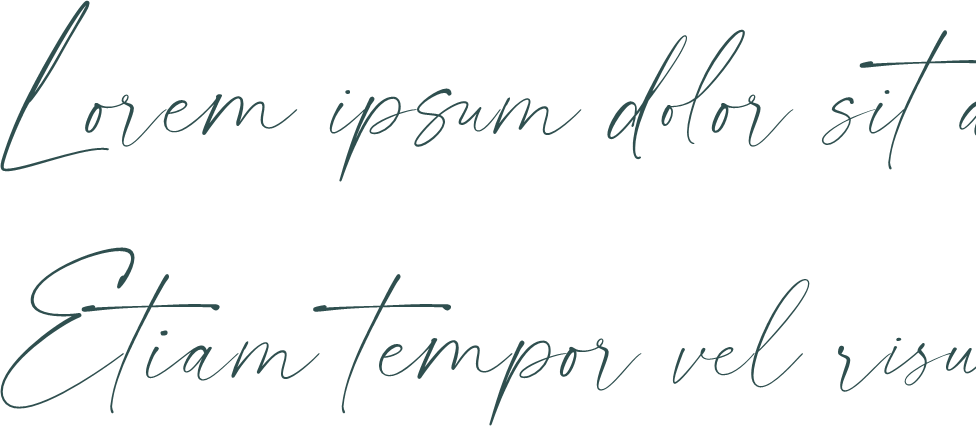 Lorem ipsum dolor sit a
Etiam tempor vel risu